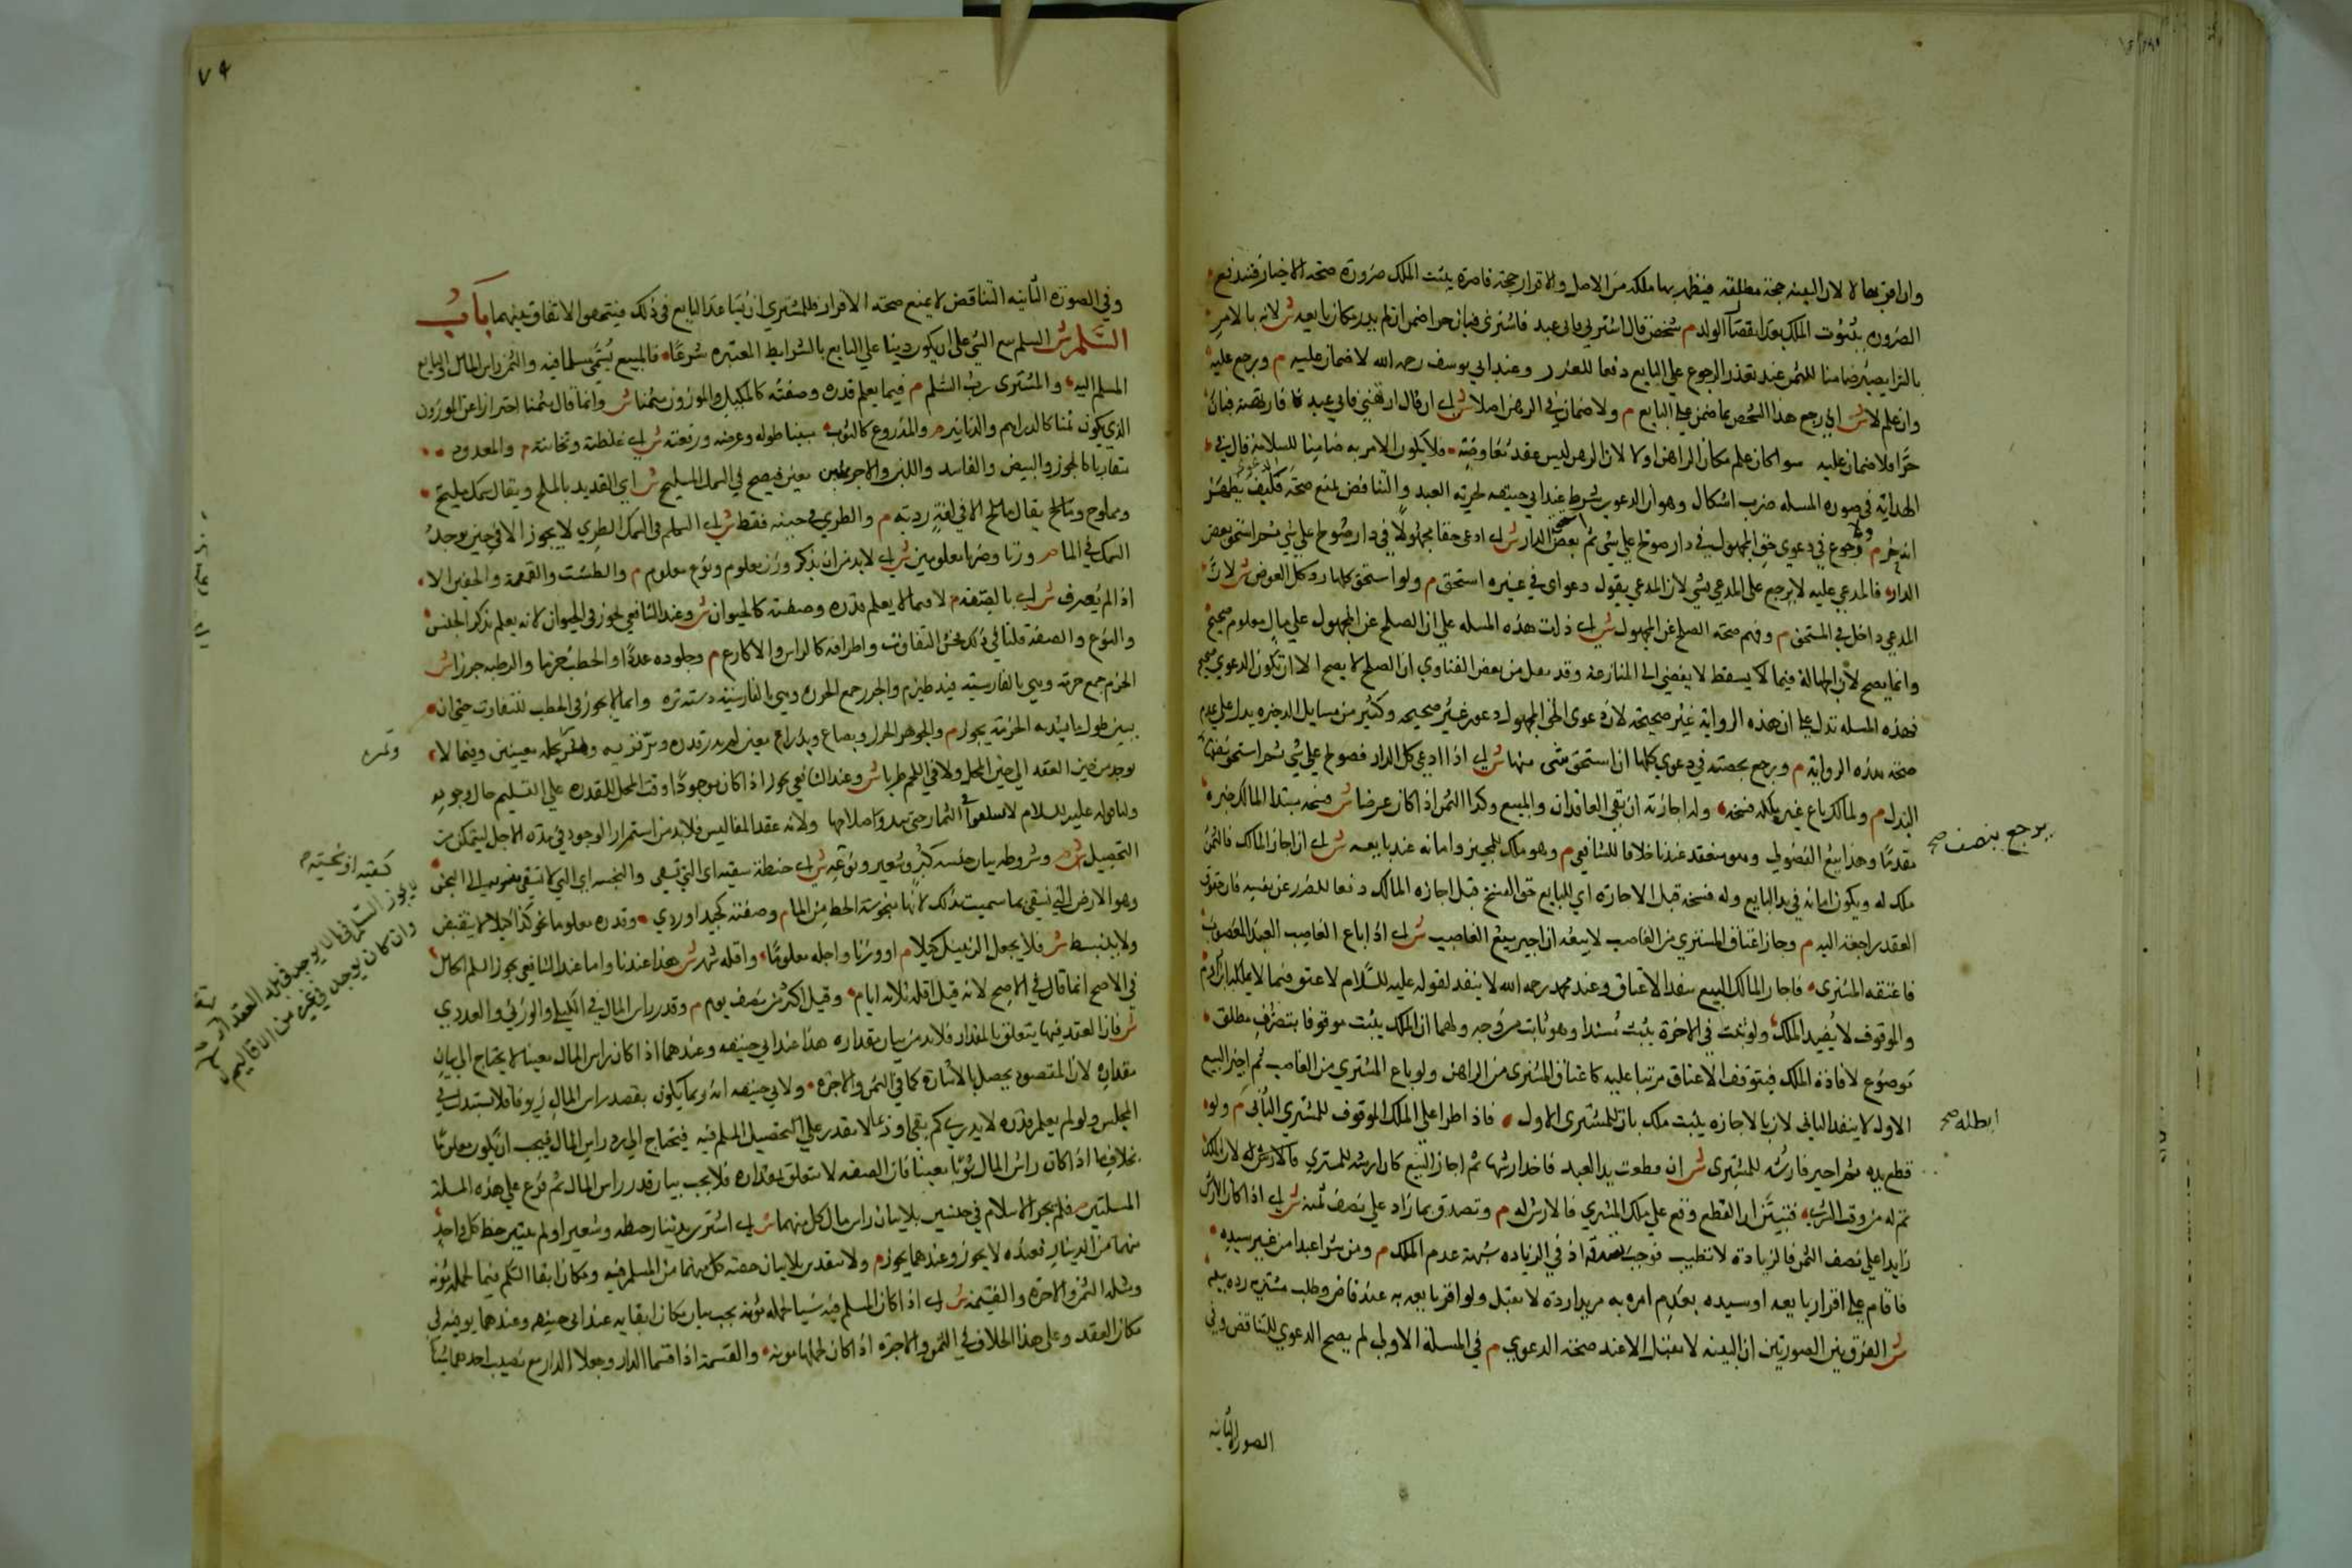 وان اقر بها لا لان البينه حجة مطلقه فيظهر بها ملكه من الاصل والاقرار حجة قاصرة يثبت الملك ضرورة صحة الاخبار فيندفع
الضروره بثبوت الملك بعد انفصال الولد م شخص قال اشترني فاني عبد فاشترى فبان حرا ضمن ان لم يدر مكان بايعه ش لانه بالامر
بالشرا يصير ضامنا للثمن عند تعذر الرجوع على البايع دفعا للغرر وعند ابي يوسف رحمه الله لا ضمان عليه م ورجع عليه
وان علم لا ش اي رجع هذا الشخص بما ضمن على البايع م ولا ضمان في الرهن اصلا ش اي ان قال ارتهنني فاني عبد فارتهنه فبان
حرا فلا ضمان عليه سوا كان علم مكان الراهن اولا لان الرهن ليس عقد معاوضة فلا يكون الامر به ضامنا للسلامة قال في
الهداية في صوره المسله ضرب اشكال وهو ان الدعوى شرط عند ابي حنيفه لحرية العبد والتناقض يمنع صحة الدعوى فكيف يظهر
انه حر م ولا رجوع في دعوى حق المجهول في دار صولح على شي ثم استحق بعض الدار ش اي ادعى حقا مجهولا في دار فصولح على شي ثم استحق بعض
الدار فالمدعي عليه لا يرجع على المدعي بشي لان المدعي يقول دعواي في غيره استحق م ولو استحق كلها رد كل العوض ش لان
المدعي داخل في المستحق م وفهم صحة الصلح عن المجهول ش اي دلت هذه المسله على ان الصلح عن المجهول على مال معلوم صحيح
وانما يصح لان الجهالة فيما يسقط لا يفضي الى المنازعة وقد نقل من بعض الفتاوي ان الصلح لا يصح الا ان تكون الدعوى صحيحة
فهذه المسله تدل على ان هذه الرواية غير صحيحة لان دعوى الحق المجهول دعوى غير صحيحة وكثير من مسايل الذخيره يدل على عدم
صحة هذه الرواية م ورجع بحصته في دعوى كلها ان استحق شي منها ش اي اذا ادعى كل الدار فصولح على شي ثم استحق بعضها
يرجع بنصف صح
البدل م ولمالك باع غيره ملكه فسخه وله اجازته ان بقي العاقدان والمبيع وكذا الثمن اذا كان عرضا ش
مقدما وهذا بيع الفضولي وهو منعقد عندنا خلافا للشافعي م وهو ملك للمجيز وامانه عند بايعه ش اي ان اجاز المالك فالثمن
ملك له ويكون امانه في يد البايع وله فسخه قبل الاجازه اي للبايع حق الفسخ قبل اجازه المالك دفعا للضرر عن نفسه فان حقوق
العقد راجعة اليه م وجاز اعتاق المشتري من الغاصب لا بيعه ان اجيز بيع الغاصب ش اي اذا باع الغاصب العبد المغصوب
فاعتقه المشتري فاجاز المالك البيع ينفذ الاعتاق وعند محمد رحمه الله لا ينفذ لقوله عليه السلام لا عتق فيما لا يملك ابن ادم
والموقوف لا يفيد الملك ولو ثبت في الاخرة يثبت مستندا وهو ثابت من وجه ولهما ان الملك يثبت موقوفا بتصرف مطلق
موضوع لافادة الملك فيتوقف الاعتاق مرتبا عليه كاعتاق المشتري من الراهن ولو باع المشتري من الغاصب ثم اجيز البيع
الاول لا ينفذ الثاني لان بالاجازه يثبت ملك بات للمشتري الاول فاذا طرا على الملك الموقوف للمشتري الثاني م ولو
ابطله صح
قطع يده ثم اجيز فارشه للمشتري ش اي ان قطعت يد العبد فاخذ ارشها ثم اجاز البيع كان ارشه للمشتري فالارش له لان الملك
تم له من وقت الشرا فتبين ان القطع وقع على ملك المشتري فالارش له م وتصدق بما زاد على نصف ثمنه ش اي اذا كان الارش
زايدا على نصف الثمن فالزيادة لا تطيب فوجب تصدقه اذ في الزياده شبهة عدم الملك م ومن شرا عبدا من غير سيده
فاقام على اقرار بايعه او سيده بعدم امره به مريدا رده لا تقبل ولو اقر بايعه به عند قاض وطلب مشتريه رده بيعه
ش الفرق بين الصورتين ان البينه لا تقبل الا عند صحة الدعوى م في المسلة الاولى لم يصح الدعوى للتناقض وفي
الصورة الثانيه
٧٤
وفي الصوره الثانيه التناقض لا يمنع صحة الاقرار فللمشتري ان يساعد البايع في ذلك فيتحقق الاتفاق بينهما باب
السلم ش السلم بيع الشي على ان يكون دينا على البايع بالشرايط المعتبره شرعا فالمبيع يسمى مسلما فيه والثمن راس المال والبايع
المسلم اليه والمشتري رب السلم م فيما يعلم قدره وصفته كالمكيل والموزون مثمنا ش وانما قال مثمنا احترازا عن الموزون
الذي يكون ثمنا كالدراهم والدنانير م والمذروع كالثوب مبينا طوله وعرضه ورقعته ش اي غلظته وثخانته م والمعدود
متقاربا كالجوز والبيض والفلس واللبن والاجر بملبن معين فيصح في السمك المليح ش اي القديد بالملح ويقال سمك مليح
ومملوح ومالح يقال مالح الا في لغة ردية م والطري في حينه فقط ش اي السلم في السمك الطري لا يجوز الا في حين يوجد
السمك في الما م وزنا وضربا معلومين ش اي لا بد من ان يذكر وزن معلوم ونوع معلوم م والطشت والقمقمة والخفين الا
اذا لم يعرف ش اي بالصفة م لا فيما لا يعلم قدره وصفته كالحيوان ش وعند الشافعي يجوز في الحيوان لانه يعلم بذكر الجنس
والنوع والصفة قلنا في ذلك فحش التفاوت واطرافه كالراس والاكارع م وجلوده عددا والحطب حزما والرطبه جرزا ش
الحزم جمع حزمة وهي بالفارسية بند هيزم والجرز جمع الجرزه وهي بالفارسية دسته تره وانما لا يجوز في الحطب للتفاوت حتى ان
بين طول ما يشد به الحزمة يجوز م والجوهر والخرز وبصاع وبذراع معين لم يدر قدره وبر قرية وتمره نخله معينين وفيما لا
وتمره
يوجد من حين العقد الى حين المحل ولا في اللحم طريا ش وعند الشافعي يجوز اذا كان موجودا وقت المحل للقدره على التسليم حال وجوبه
ولنا قوله عليه السلام لا تسلفوا في الثمار حتى يبدو صلاحها ولانه عقد المفاليس فلا بد من استمرار الوجود في مدة الاجل ليتمكن من
التحصيل م وشروطه بيان جنسه كبر وشعير ونوعه ش اي حنطة سقيه اي التي تسقى والبخسه اي التي لا تسقى
كسقيه او بخسيه
وهو الارض التي تسقى بما سميت بذلك لانها مبخوسة الحظ من الما م وصفته كجيد او ردي وقدره معلوما نحو كذا كيلا لا ينقبض
يجوز السلم فيما لا يوجد قبل العقد
وان كان يوجد في غيره من الاقاليم
ولا ينبسط ش فلا يجعل الزنبيل كيلا م او وزنا واجله معلوما واقله شهر ش هذا عندنا واما عند الشافعي يجوز السلم الحال
في الاصح انما قال في الاصح لانه قيل اقله ثلاثه ايام وقيل اكثر من نصف يوم م وقدر راس المال في الكيلي والوزني والعددي
ش فان العقد فيها يتعلق بالمقدار فلا بد من بيان مقداره هذا عند ابي حنيفه وعندهما اذا كان راس المال معينا لا يحتاج الى بيان
مقداره لان المقصود يحصل بالاشارة كما في الثمن والاجره ولابي حنيفه انه ربما يكون بعض راس المال زيوفا فلا يستبدل في
المجلس ولو لم يعلم قدره لا يدري كم بقي او ربما لا يقدر على تحصيل المسلم فيه فيحتاج الى رد راس المال فيجب ان يكون معلوما
بخلاف ما اذا كان راس المال ثوبا معينا فان الصفقه لا تتعلق بمقداره فلا يجب بيان قدر راس المال ثم فرع على هذه المسلة
المسلتين فلم يجز الاسلام في جنسين بلا بيان راس مال كل منهما ش اي اشترى بدينار حنطه وشعير او لم يتبين حظ كل واحد
منهما من الدينار فعنده لا يجوز وعندهما يجوز م ولا بنقدين بلا بيان حصة كل منهما من المسلم فيه ومكان ايفا السلم فيما لحمله مؤنه
ومثله الثمن والاجرة والقسمة ش اي اذا كان المسلم فيه شيا لحمله مؤنه يجب بيان مكان ايفايه عند ابي حنيفه وعندهما يوفيه في
مكان العقد وعلى هذا الخلاف في الثمن والاجرة اذا كان لحملها مؤنه والقسمة اذا اقتسما الدار وجعلا الدار مع نصيب احدهما شيا